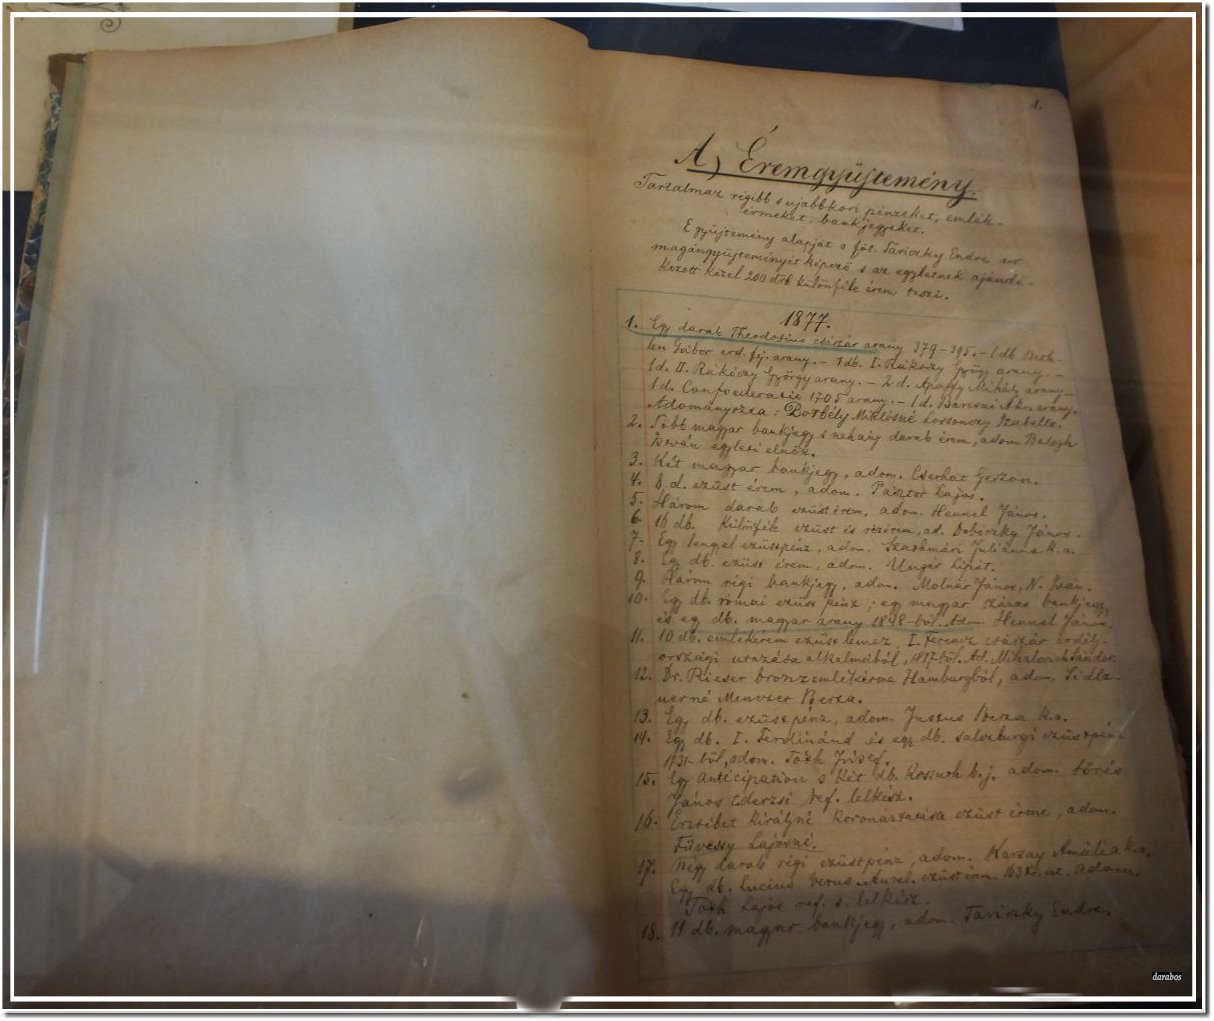 1.
A, Éremgyüjtemény.
Tartalmaz régibb s ujabbkori pénzeket, emlék-
érmeket, bankjegyeket.
E gyüjtemény alapját a föt. Tariczky Endre ur
magángyüjteményét képező s az egyletnek ajándé-
kozott közel 200 drb különféle érem teszi.
1877.
1. Egy darab Theodosius császár arany 379-395.- 1 db Beth-
len Gábor erd. fej. arany.- 1 db. I. Rákóczy György arany.-
1 d. II. Rákóczy György arany.- 2 d. Apaffy Mihály arany-
1 d. Confoederatio 1705 arany.- 1 d. Barcsai Ákos arany.
Adományozta: Borbély Miklósné Lossonczy Izabella.
2. Több magyar bankjegy s néhány darab érem, adom. Balogh
István egyleti elnök.
3. Két magyar bankjegy, adom. Cserhát Gerzon.
4. 8 d. ezüst érem, adom. Pásztor Lajos.
5. Három darab ezüst érem, adom. Hennel János.
6. 16 db. különfék ezüst és rézérem, ad. Dobóczky János.
7. Egy lengyel ezüstpénz, adom. Szathmári Juliánna k.a.
8. Egy db. ezüst érem, adom. Ungár Lipót.
9. Három régi bankjegy, adom. Molnár János, N. Iván.
10. Egy db. római ezüst pénz; egy magyar százas bankjegy,
és egy db. magyar arany 1848-ból. Adom Hennel János.
11. 10 db. emlékérem ezüst lemez, I. Ferencz császár erdély-
országi utazása alkalmából, 1817-ből. Ad. Mihalovich Sándor.
12. Dr. Rieser bronz emlékérme Hamburgból, adom. Sidla-
uerné Menczer Berta.
13. Egy db. ezüstpénz, adom. Jusztus Berta k.a.
14. Egy db. I. Ferdinánd és egy db. salzburgi ezüstpénz
ből, adom. Tóth József.
15. Egy Anticipation s két db. Kossuth b.j. adom.
János t.derzsi ref. lelkész.
16. Erzsébet királyné koronáztatása ezüst érme, adom.
Füvessy Lajosné.
17. Négy darab régi ezüstpénz, adom. Karsay Amália k.a.
Egy db. Lucius Verus Aurel. ezüst érm. 163 Kr. ut. Adom.
Tóth Lajos ref. s. lelkész.
18. 11 db. magyar bankjegy, adom. Tariczky Endre.
darabos